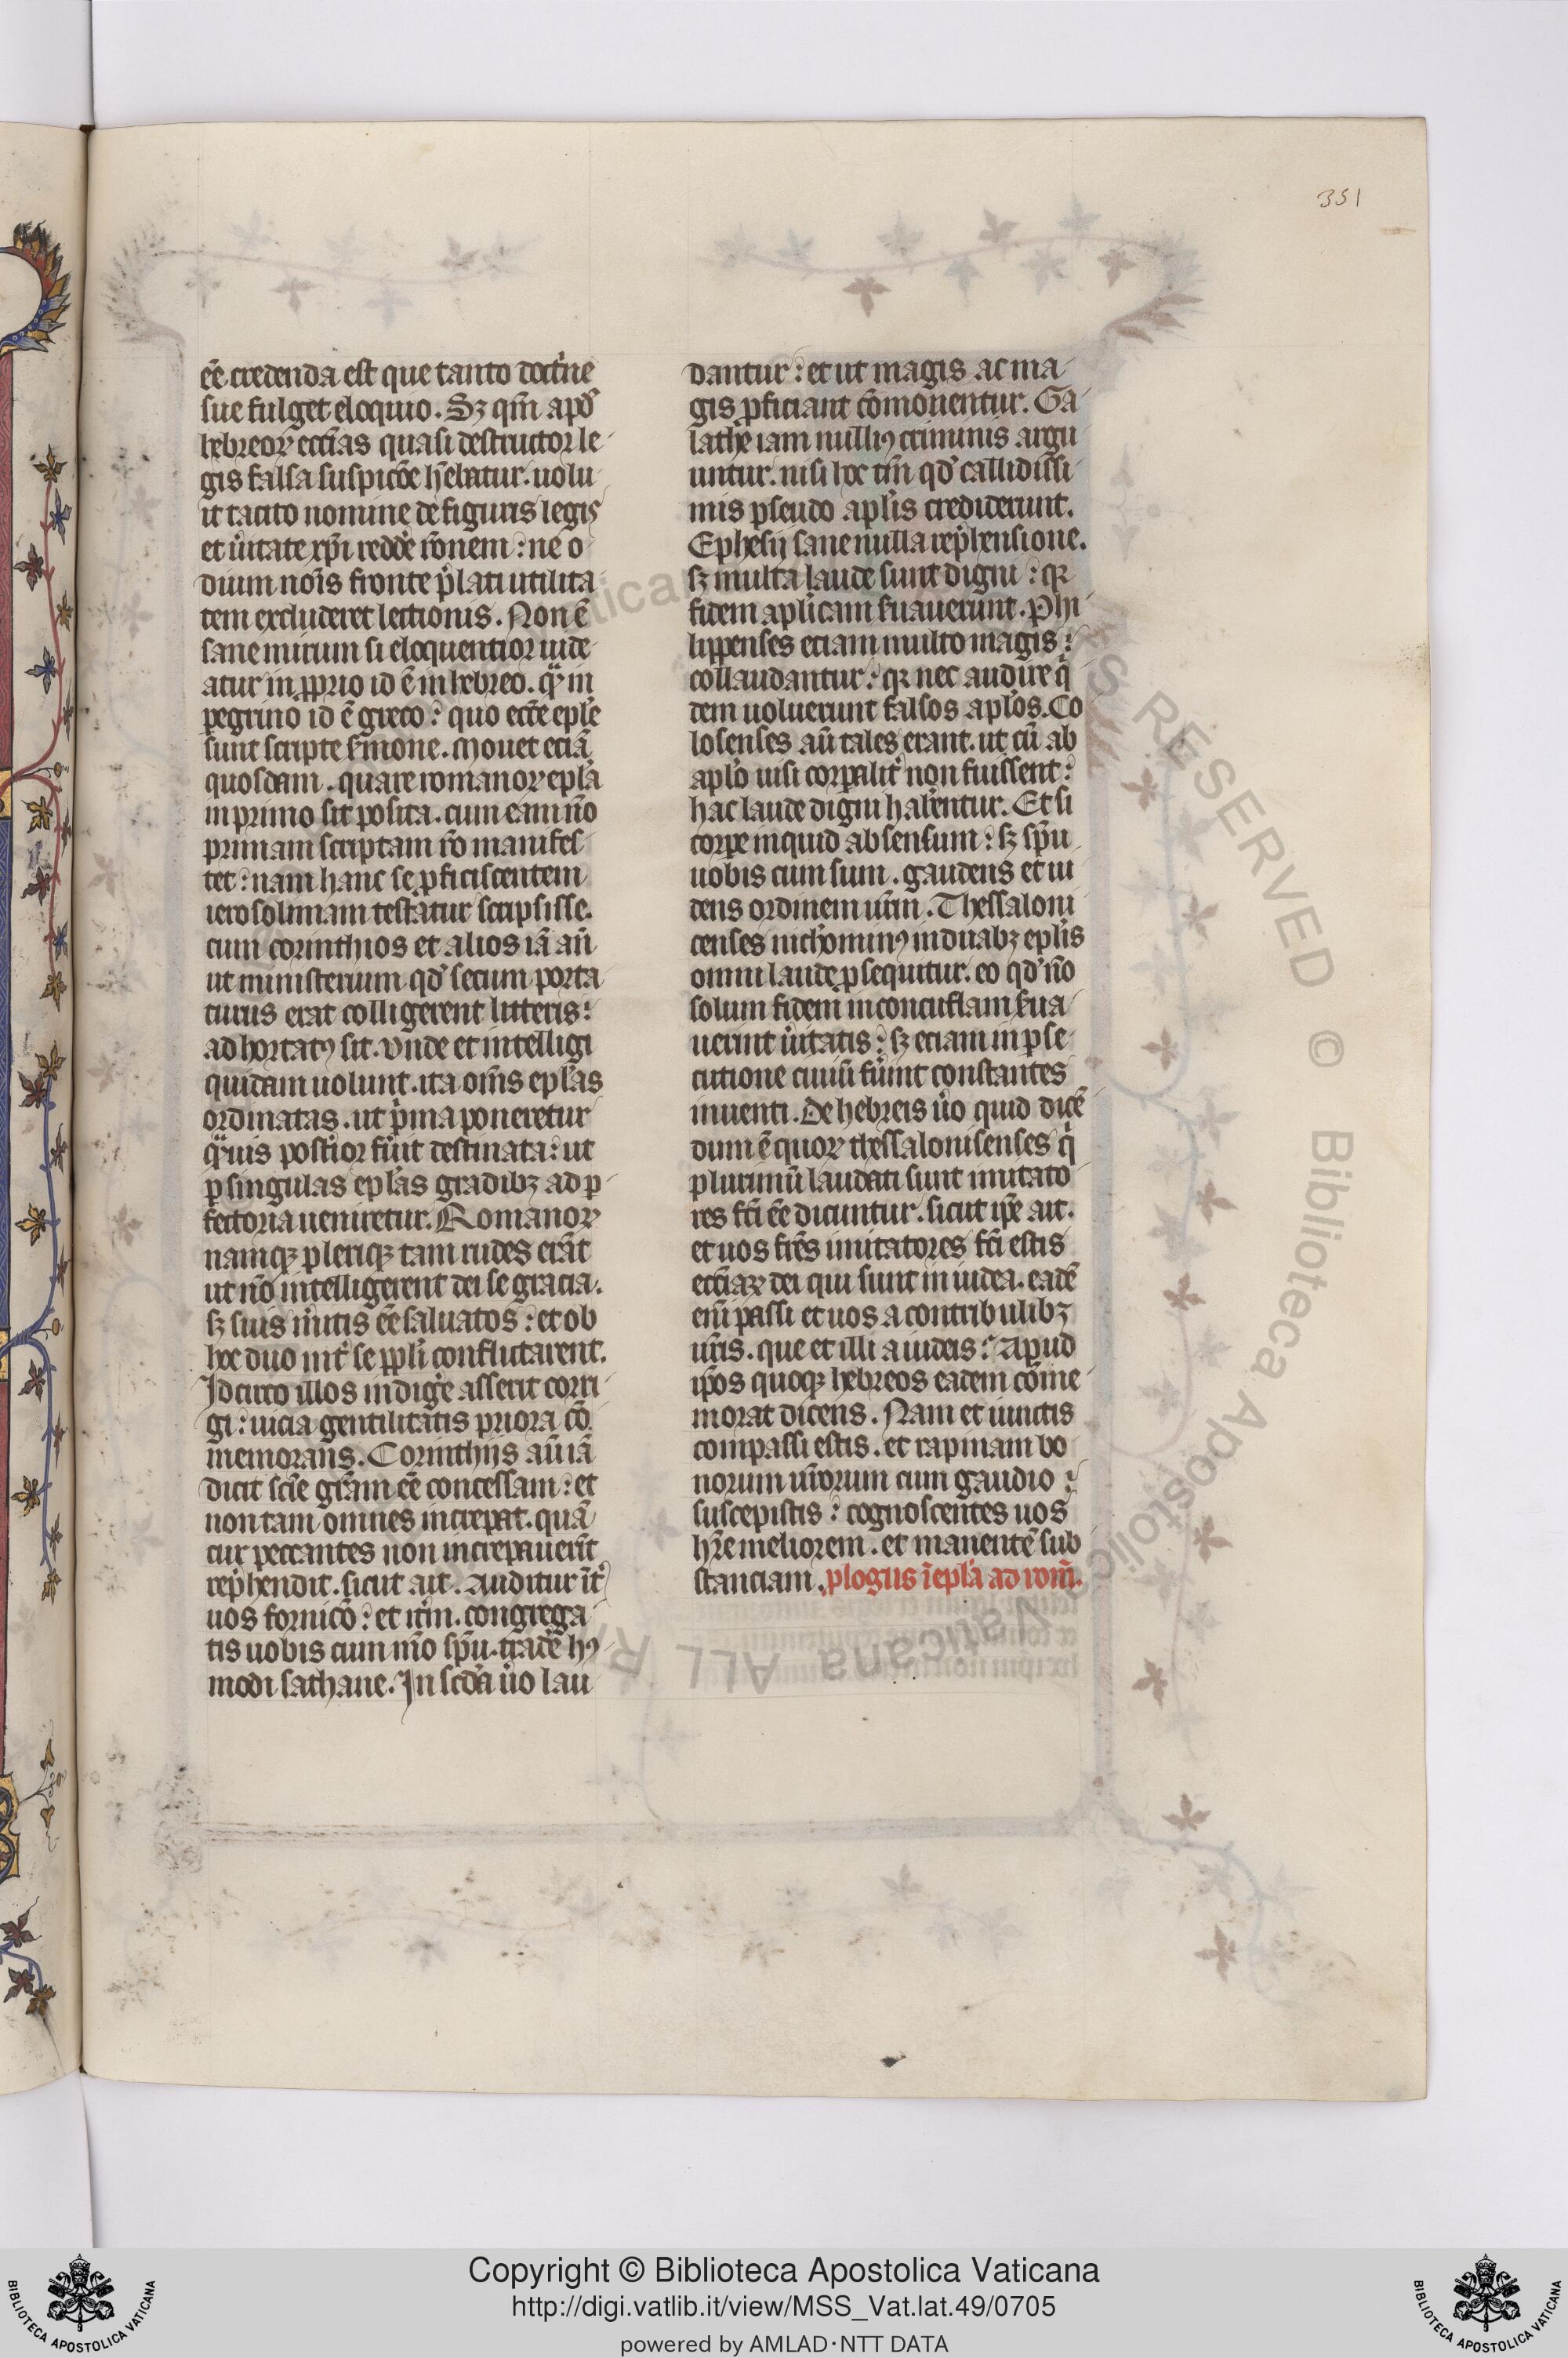 351
ēē credenda est que tanto doct'ne
sue fulget eloquio. Sꝫ qm̄ apd'
hebreoꝝ ecc̄ias quasi destructor le
gis falsa suspicōe h̄ebatur. uolu
it tacito nomine de figuris legis
et u'itate xp̄i redd'e rōnem : ne o
dium nōis fronte p'lati utilita
tem excluderet lectionis. Non ē
sane mirum si eloquentior uide
atur in ꝓprio id ē in hebreo. qͣ in
pegrino id ē greco : quo cet'e ep̄le
sunt scripte s'mone. Mouet eciā
quosdam. quare romanoꝝ ep̄la
in primo sit posita. cum eam nō
primam scriptam rō manifes
tet : nam hanc se ꝓficiscentem
ierosolimam testatur scripsisse.
cum corinthios et alios iā an̄
ut ministerium qd' secum porta
turus erat colligerent litteris :
adhortatꝰ sit. vnde et intelligi
quidam uolunt. ita om̄s ep̄las
ordinatas. ut p'ma poneretur
qͣuis post'ior fu'it destinata : ut
ꝑ singulas ep̄las gradibꝫ ad ꝑ
fectoria ueniretur. Romanoꝝ
namqꝫ pleriqꝫ tam rudes erāt
ut nō intelligerent dei se gracia.
sꝫ suis m'itis ēē saluatos : et ob
hoc duo int' se pp̄li conflictarent.
Idcirco illos indig'e asserit corri
gi : uicia gentilitatis priora cō
memorans. Corinthijs aūt iā
dicit scīe gr̄am ēē concessam : et
non tam omnes increpat. quā
cur peccantes non increpauerūt
rep'hendit. sicut ait. Auditur īt'
uos fornicō : et it'm. congrega
tis uobis cum mō sp̄u. trad'e hꝰ
modi sathane. In scd'a u'o lau
dantur : et ut magis ac ma
gis ꝓficiant cōmonentur. Ga
lathe iam nulliꝰ criminis argu
untur. nisi hoc tm̄ qd' callidissi
mis pseudo ap̄lis crediderunt.
Ephesij sane nulla rep'hensione.
sꝫ multa laude sunt digni : qꝛ
fidem ap̄licam s'uauerunt. Phi
lippenses eciam multo magis :
collaudantur : qꝛ nec audire q'
dem uoluerunt falsos ap̄los. Co
losenses aū tales erant. ut cū ab
ap̄lo uisi corꝑalit' non fuissent :
hac laude digni hab'entur. Et si
corpe inquid absens sum : sꝫ sp̄u
uobis cum sum. gaudens et ui
dens ordinem ur̄m. Thessaloni
censes nich'ominꝰ in duabꝫ ep̄lis
omni laude ꝓsequitur. eo qd' nō
solum fidem inconcussam s'ua
uerint u'itatis : sꝫ eciam in ꝑse
cutione ciuiū fu'int constantes
inuenti. De hebreis u'o quid dicē
dum ē quoꝝ thessalonisenses q'
plurimū laudati sunt imitato
res fc̄i ēē dicuntur. sicut ip̄e ait.
et uos fr̄es imitatores fc̄i estis
ecc̄iaꝝ dei qui sunt in iudea. eadē
eni passi et uos a contribulibꝫ
ur̄is. que et illi a iudeis : Apud
ip̄os quoqꝫ hebreos eadem cōme
morat dicens. Nam et uinctis
compassi estis. et rapinam bo
norum ur̄orum cum gaudio :
suscepistis : cognoscentes uos
h'ere meliorem. et manentē sub
stanciam. ꝓlogus ī ep̄la ad rom̄.
Copyright © Biblioteca Apostolica Vaticana
http://digi.vatlib.it/view/MSS_Vat.lat.49/0705
powered by AMLAD·NTT DATA
BIBLIOTECA APOSTOLICA VATICANA
BIBLIOTECA APOSTOLICA VATICANA